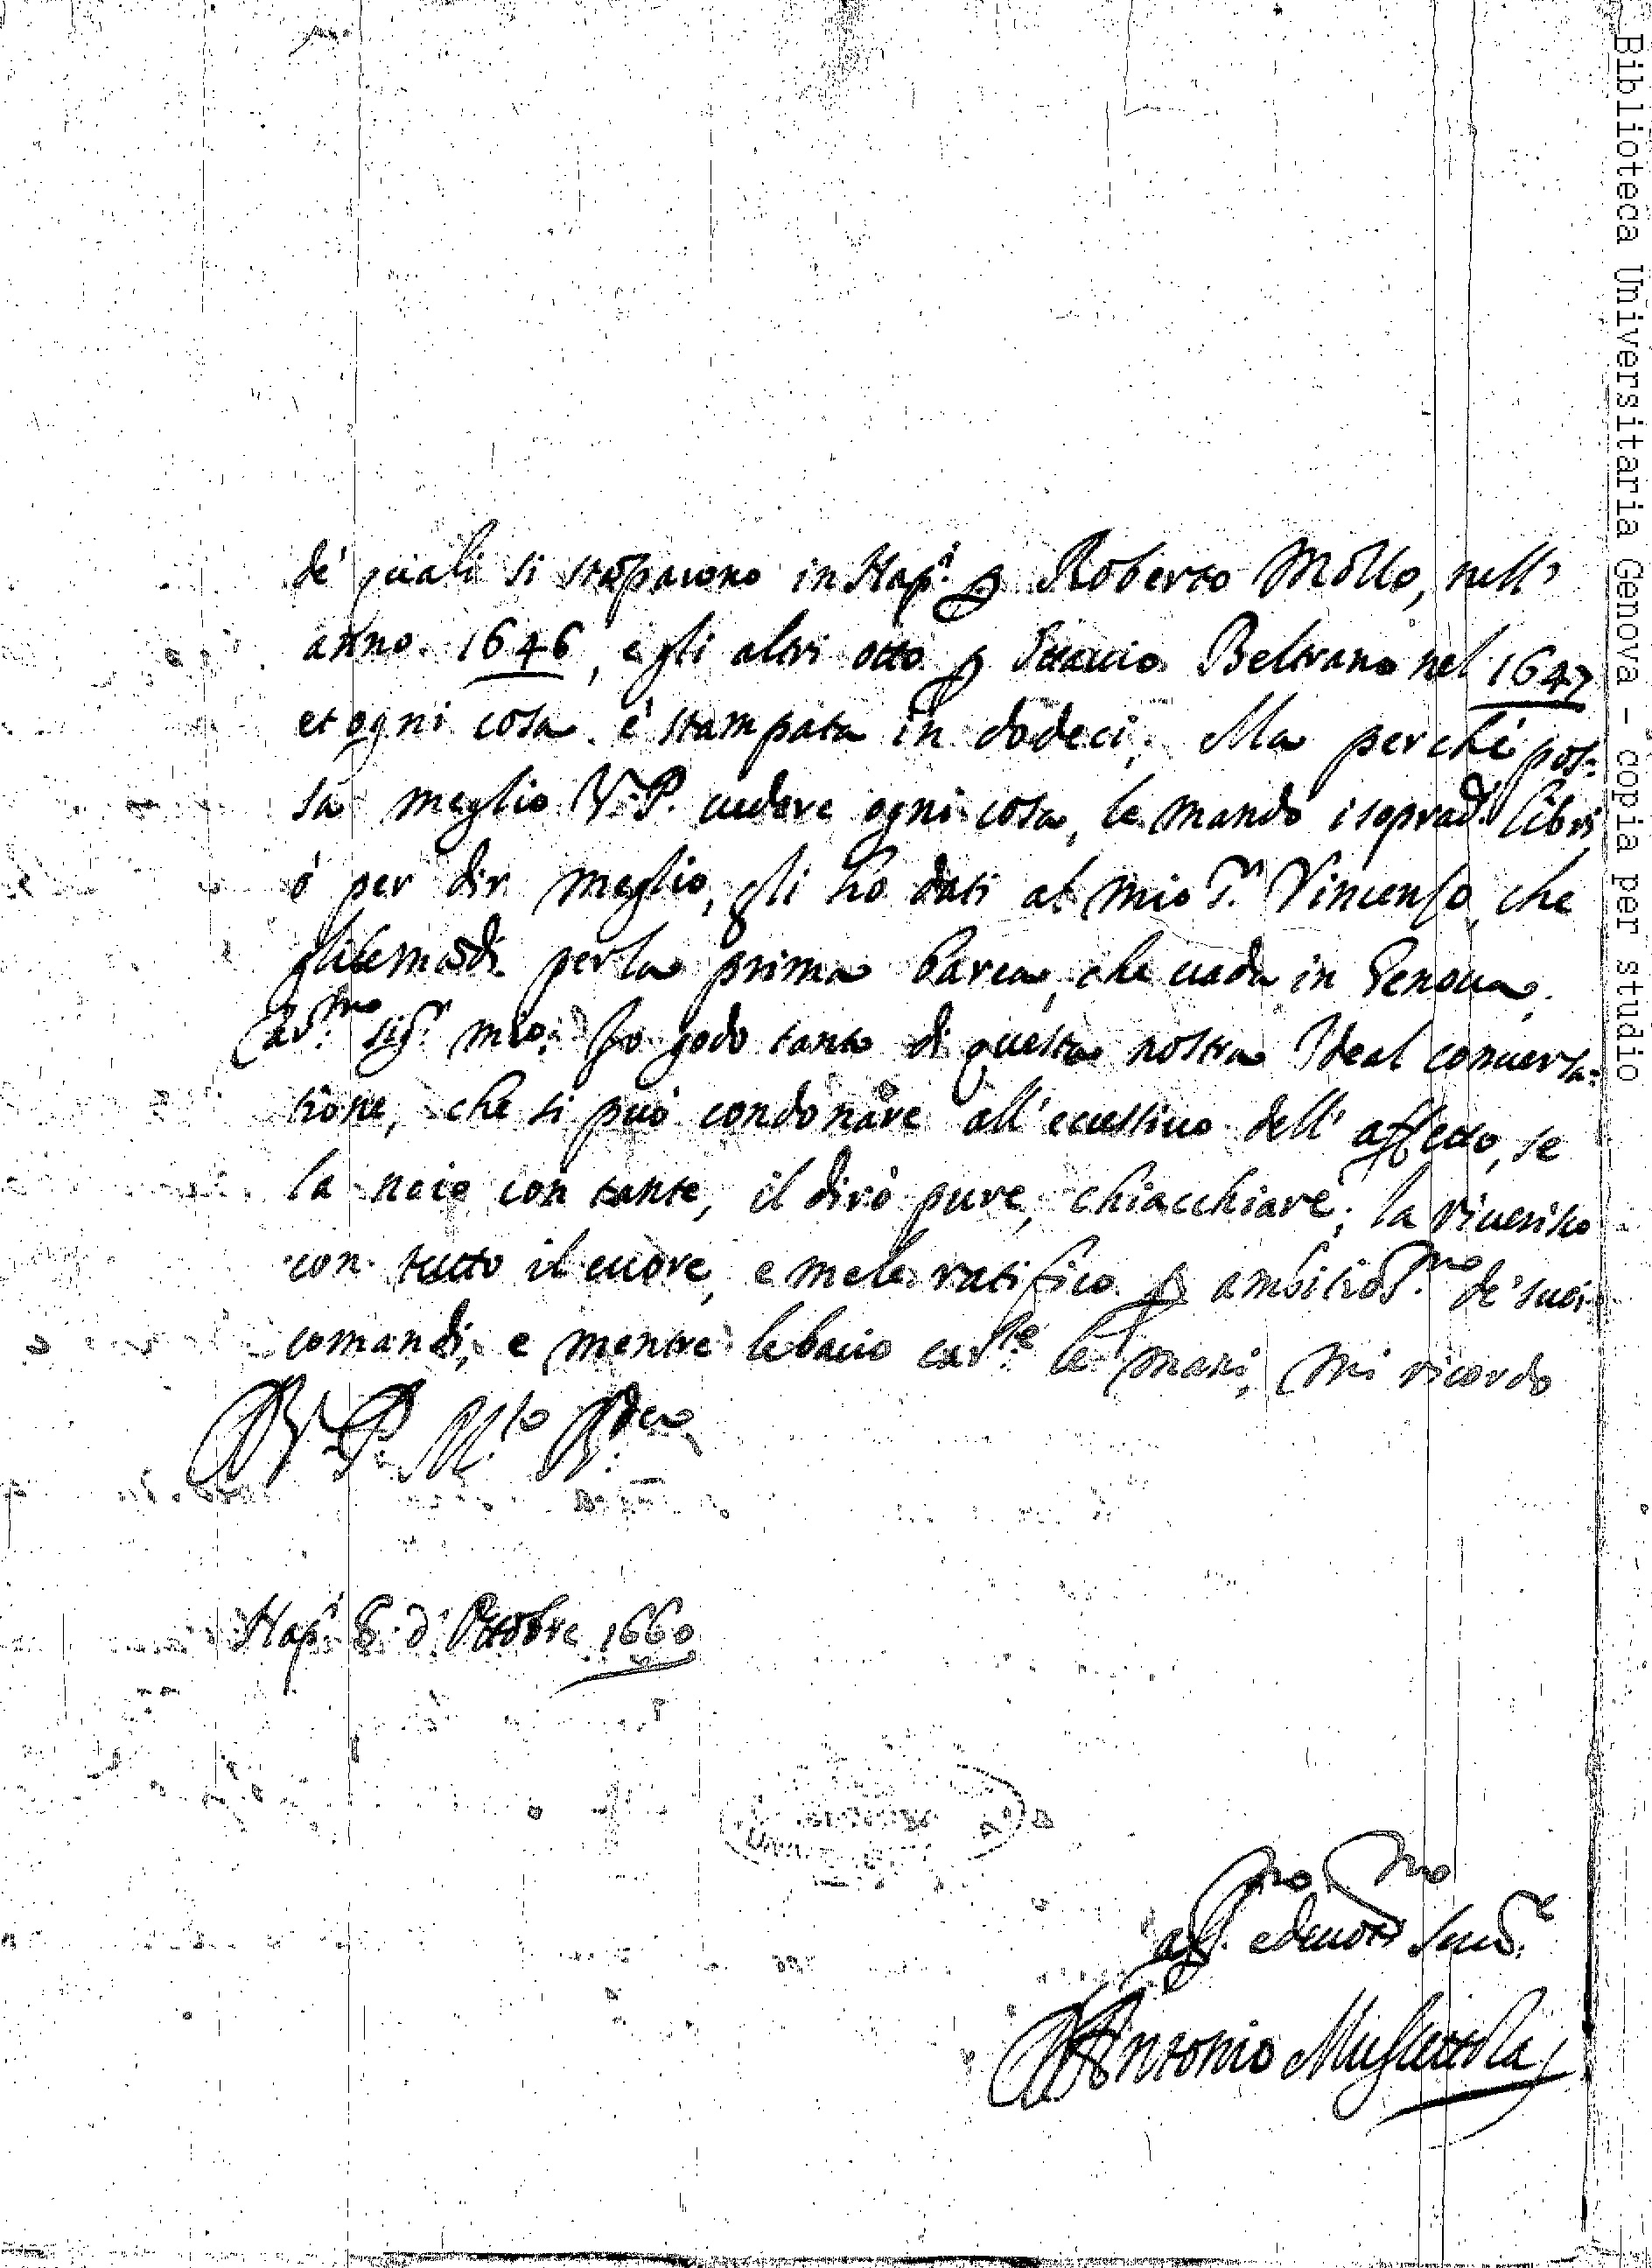 de' quali si stãparono in Nap.ⁱ ꝑ Roberto Mollo, nell'
anno. 1646, e gli altri otto ꝑ Ottavio Beltrano nel 1647
et ogni cosa è stampata in dodeci. Ma perche pos=
sa meglio V. P. vedere ogni cosa, le mando i soprad.ⁱ libri
ò per dir meglio, gli hò dati al mio S.ʳ Vincenso, che
gli le mãdi per la prima barca, che vada in Genova.
Car.ᵐᵒ sig.ʳ mio. Io godo tanto di questa nostra Ideal conversa=
tione, che si può condonare all' eccessivo dell' affetto, se
la noio con tante, il dirò pure, chiacchiare; la riverisco
con tutto il cuore, e me le ratifico ꝑ ambitios.ᵐᵒ de' suoi
comandi, e mentre le bacio car.ᵗᵉ le mani, mi ricordo
D. V. P. M.ᵗᵒ R.ᵈᵃ
Nap.ⁱ 8. d' Ottobre 1660
aff.ᵐᵒ e devot.ᵐᵒ serv.ᵉ
Antonio Muscettola
Biblioteca Universitaria Genova - copia per studio